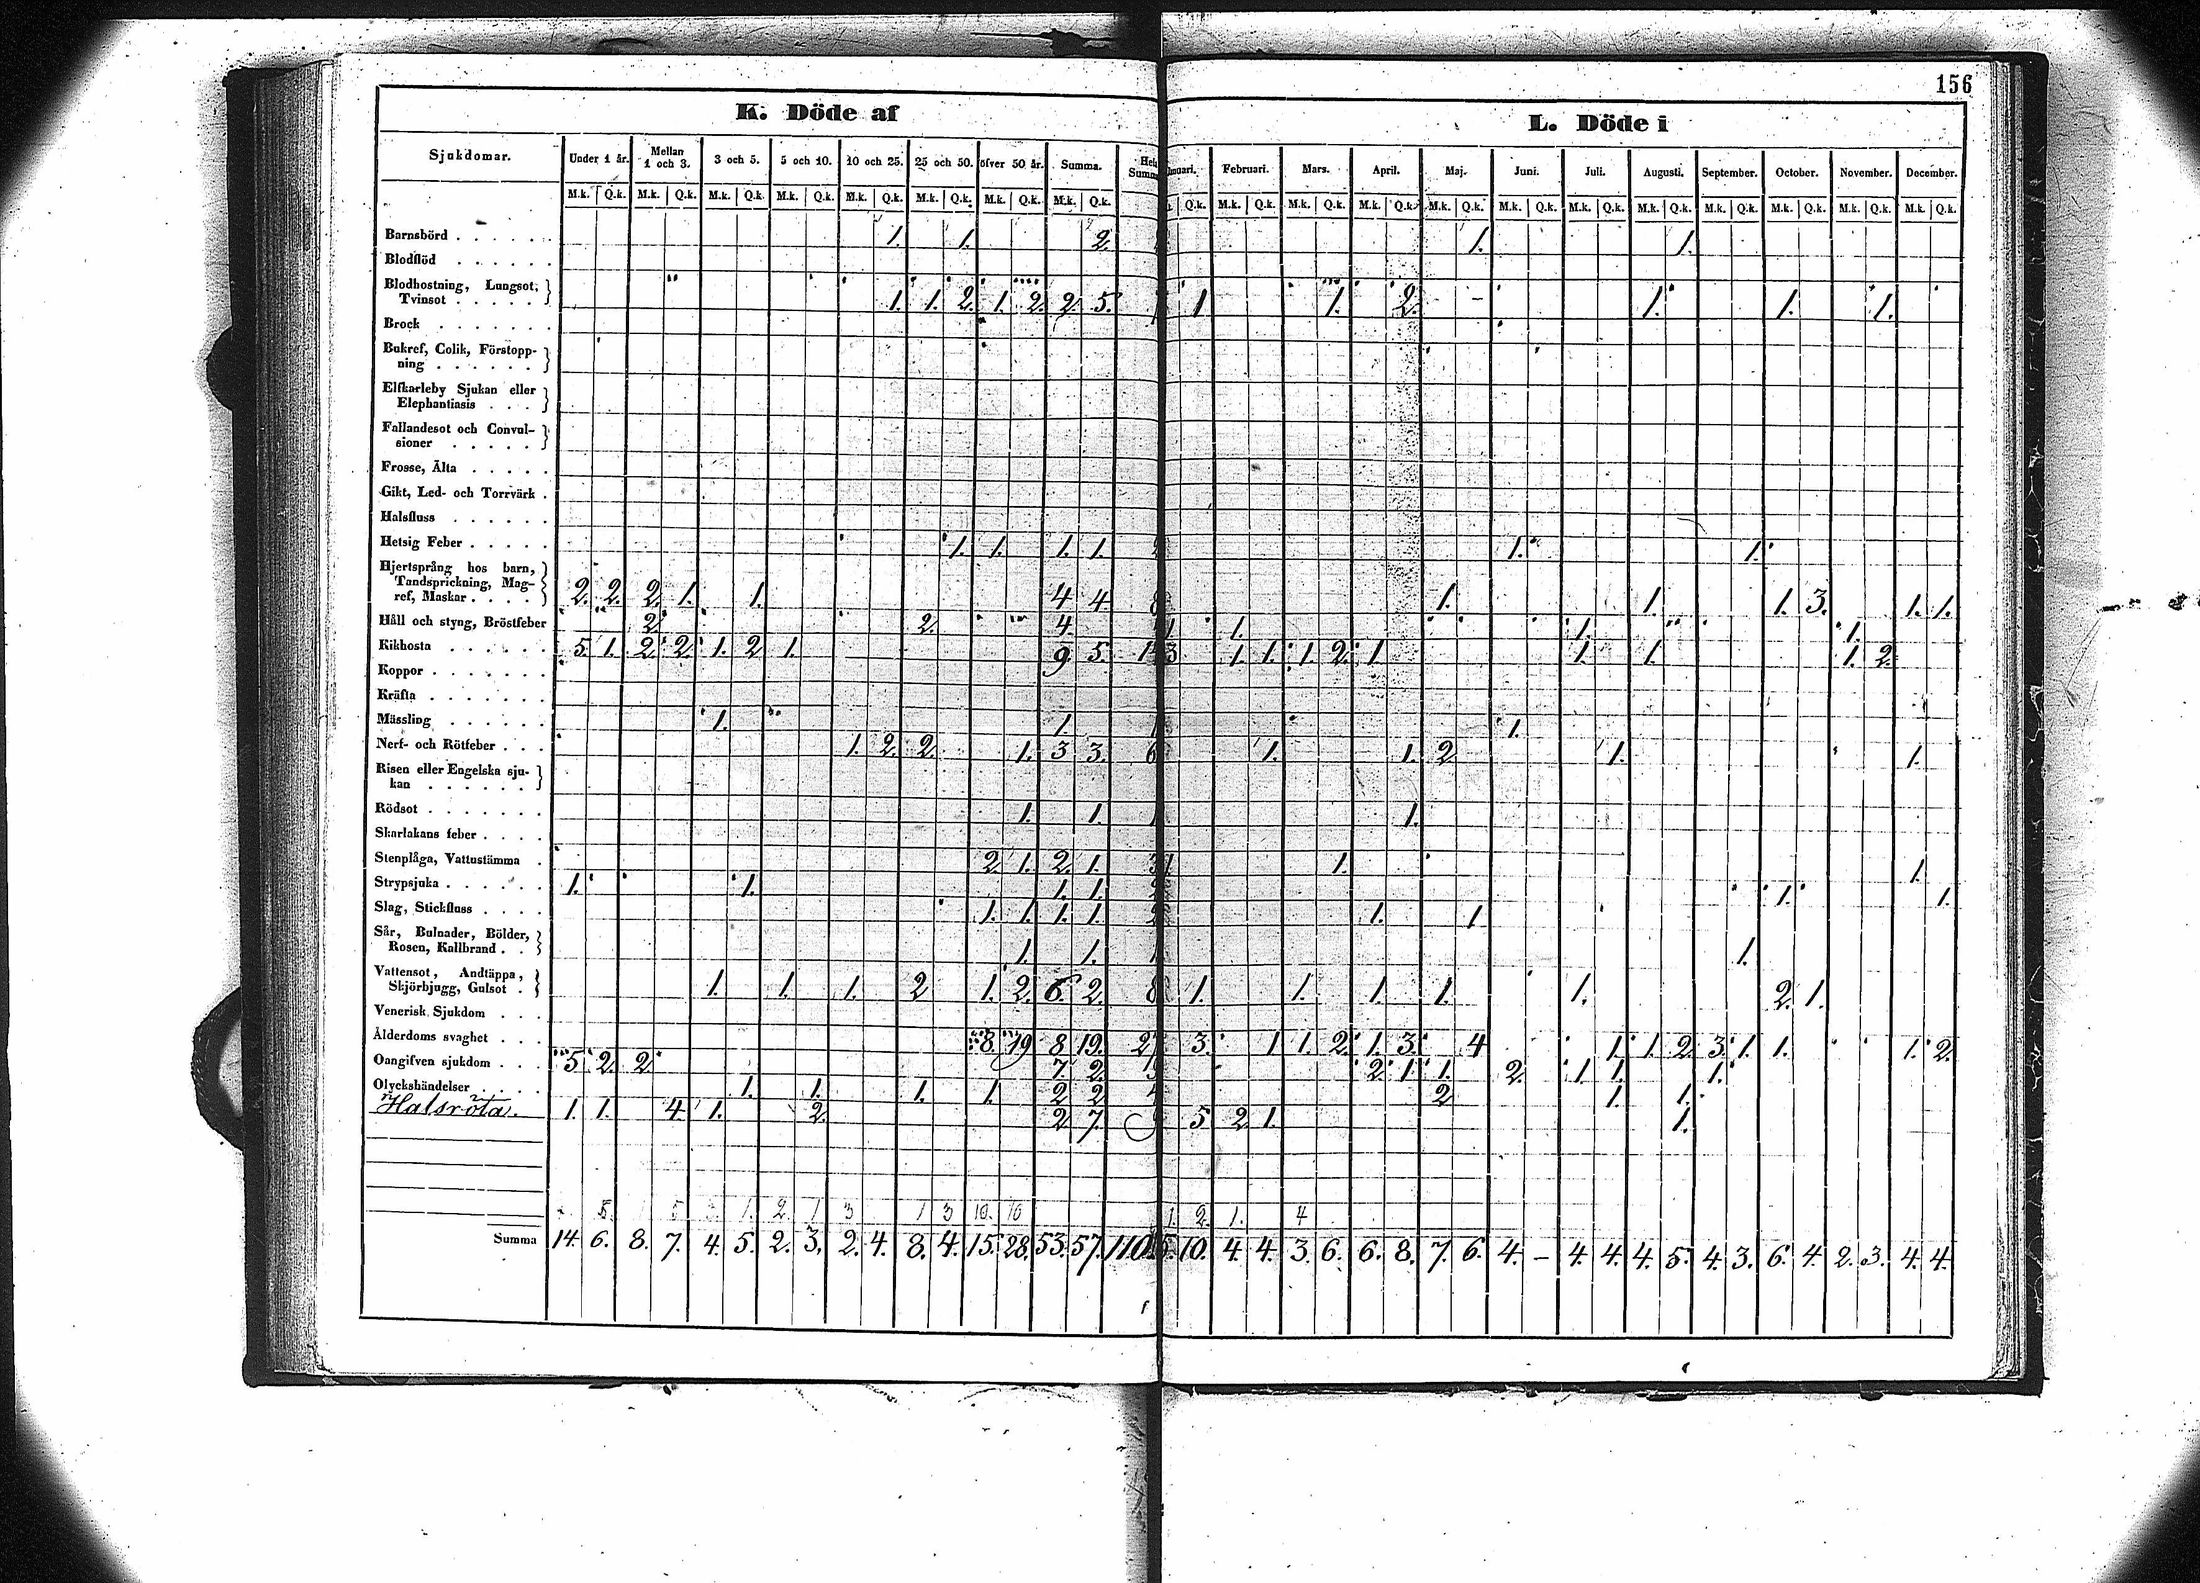 156
K. Döde af
L. Döde i
Sjukdomar. Under 1 år. Mellan 1 och 3. 3 och 5. 5 och 10. 10 och 25. 25 och 50. öfver 50 år. Summa. Februari. Mars. April. Maj. Juni. Juli. Augusti. September. October. November. December.
M.k. Q.k. M.k. Q.k. M.k. Q.k. M.k. Q.k. M.k. Q.k. M.k. Q.k. M.k. Q.k. M.k. Q.k. Q.k. M.k. Q.k. M.k. Q.k. M.k. Q.k. M.k. Q.k. M.k. Q.k. M.k. Q.k. M.k. Q.k. M.k. Q.k. M.k. Q.k. M.k. Q.k. M.k. Q.k.
Barnsbörd 1. 1. 2. 1. 1.
Blodflöd
Blodhostning, Lungsot,
Tvinsot 1. 1. 2. 1. 2. 2. 5. 1 1. 2. 1. 1. 1.
Brock
Bukref, Colik, Förstopp-
ning
Elfkarleby Sjukan eller
Elephantiasis
Fallandesot och Convul-
sioner
Frosse, Älta
Gikt, Led- och Torrvärk
Halsfluss
Hetsig Feber 1. 1. 1. 1. 1. 1.
Hjertsprång hos barn,
Tandsprickning, Mag-
ref, Maskar 2. 2. 2. 1. 1. 4 4. 8 1. 1. 1. 3. 1. 1.
Håll och styng, Bröstfeber 2. 2. 4. 1. 1. 1. 1.
Kikhosta 5. 1. 2. 2. 1. 2 1. 9. 5. 14 3 1. 1. 1. 2. 1 1. 1. 1. 2.
Koppor
Kräfta
Mässling 1. 1. 1 1.
Nerf- och Rötfeber 1. 2. 2. 1. 3 3. 6 1. 1. 2 1. 1.
Risen eller Engelska sju-
kan
Rödsot 1. 1. 1 1.
Skarlakans feber
Stenplåga, Vattustämma 2. 1. 2. 1. 3 1. 1. 1.
Strypsjuka 1. 1. 1. 1. 2 1. 1.
Slag, Stickfluss 1. 1. 1. 1. 2 1. 1
Sår, Bulnader, Bölder,
Rosen, Kallbrand 1. 1. 1 1.
Vattensot, Andtäppa,
Skjörbjugg, Gulsot 1. 1. 1. 2 1. 2. 6. 2. 8 1. 1. 1 1. 1. 2. 1.
Venerisk Sjukdom
Ålderdoms svaghet 8. 19 8 19. 27 3. 1 1. 2. 1. 3. 4 1. 1. 2. 3. 1. 1. 1. 2.
Oangifven sjukdom 5 2. 2 7. 2. 2. 1. 1. 2. 1. 1. 1.
Olyckshändelser 1. 1. 1. 1. 2 2 2 1. 1.
Halsröta. 1. 1. 4 1. 2. 2 7. 5 2 1. 1.
5. 5 3. 1. 2. 1 3 1 3 10. 10 1. 2. 1. 4
Summa 14. 6. 8. 7. 4. 5. 2. 3. 2. 4. 8. 4. 15. 28. 53. 57. 110. 5. 10. 4. 4. 3. 6. 6. 8. 7. 6. 4. – 4. 4. 4. 5. 4. 3. 6. 4. 2. 3. 4. 4.